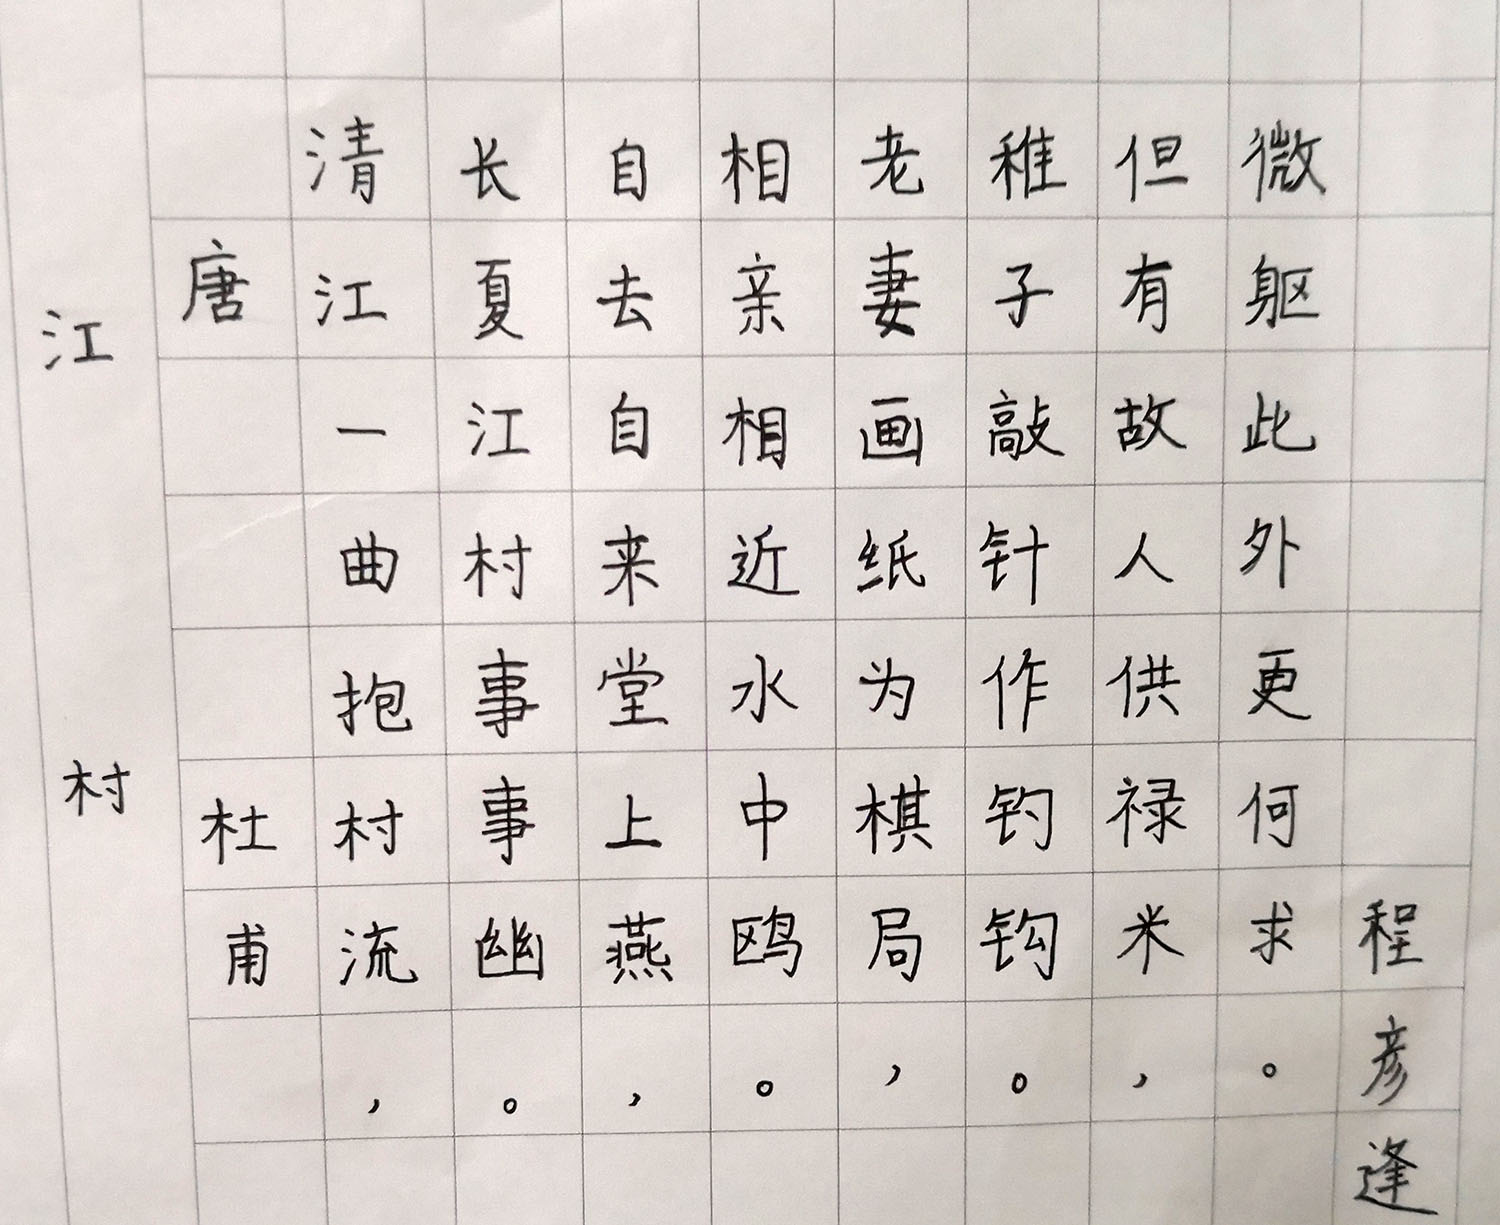 江村
唐 杜甫
清江一曲抱村流，
长夏江村事事幽。
自去自来堂上燕，
相亲相近水中鸥。
老妻画纸为棋局，
稚子敲针作钓钩。
但有故人供禄米，
微躯此外更何求。
程彦逢